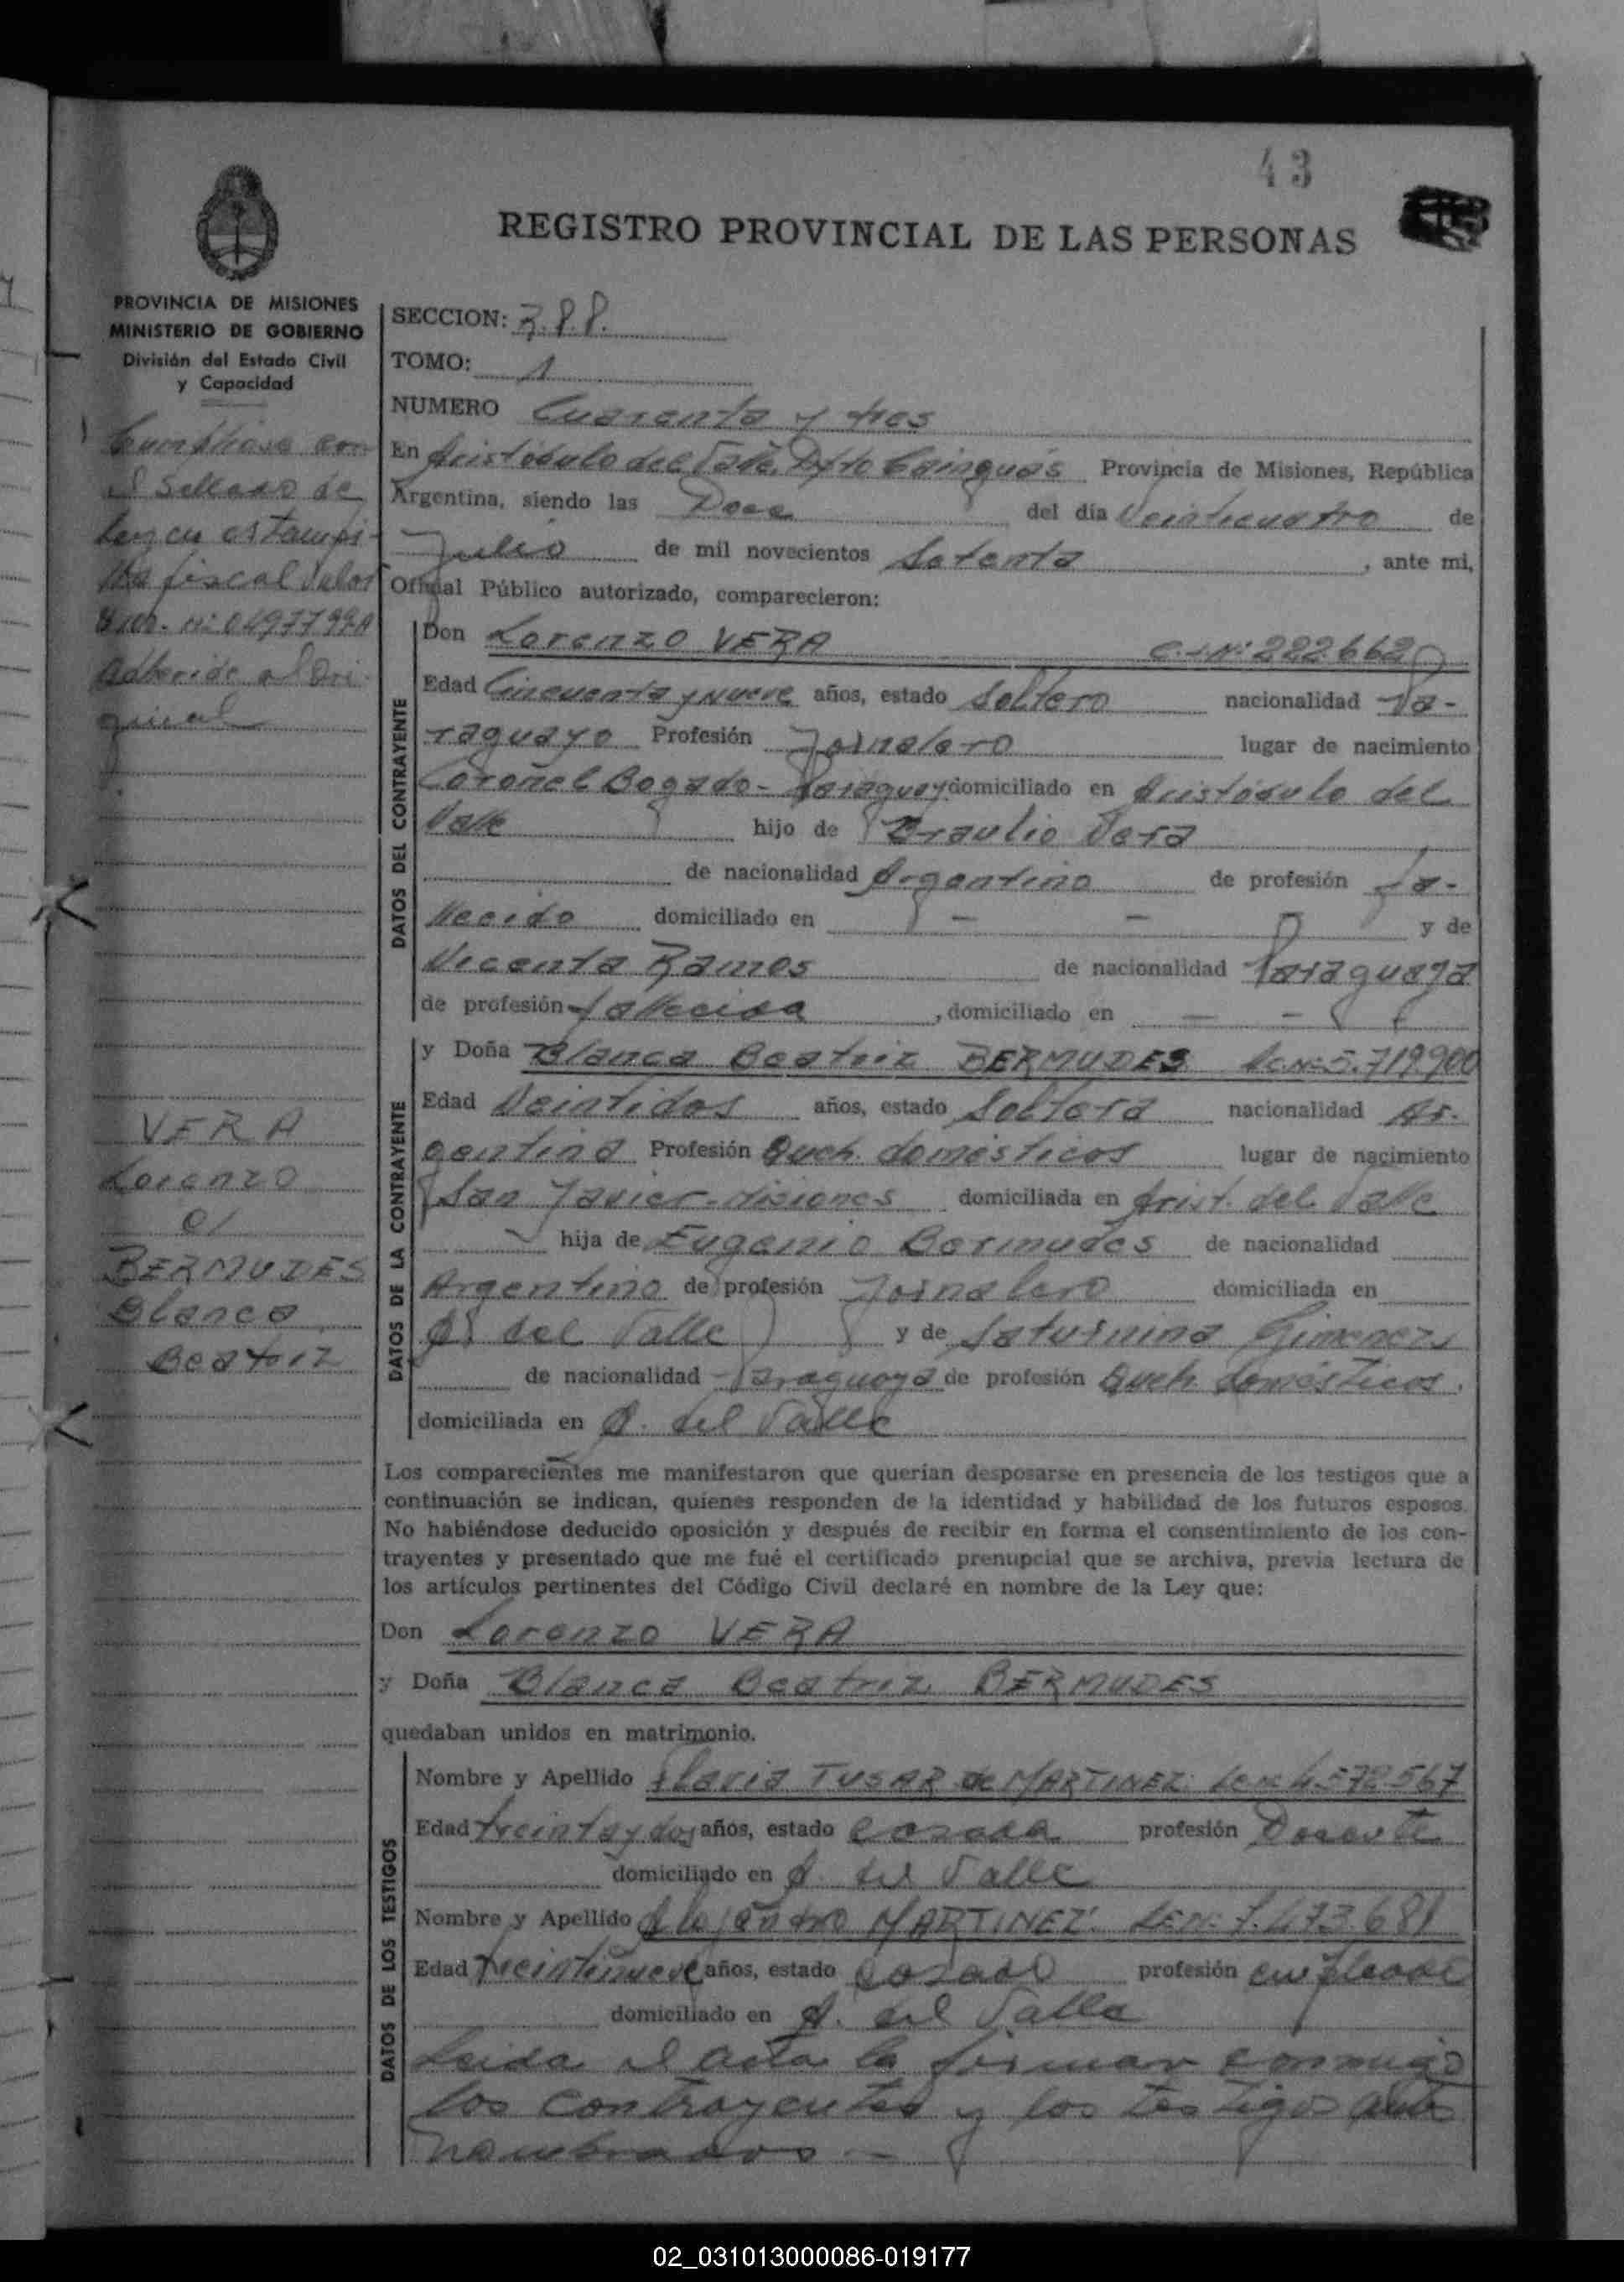 43
REGISTRO PROVINCIAL DE LAS PERSONAS
PROVINCIA DE MISIONES
MINISTERIO DE GOBIERNO
División del Estado Civil
y Capacidad
Cumpliose con
el Sellado de
Ley en estampi-
lla fiscal valor
adherido al Ori-
ginal
VERA
Lorenzo
c/
BERMUDES
Blanca
Beatriz
SECCION:
TOMO: 1
NUMERO Cuarenta y tres
En Aristóbulo del Valle, Dpto Cainguás Provincia de Misiones, República
Argentina, siendo las Doce del día Veinticuatro de
Julio de mil novecientos Setenta, ante mi,
Oficial Público autorizado, comparecieron:
DATOS DEL CONTRAYENTE
Don Lorenzo VERA C.I.Nº 222.662
Edad Cincuenta y nueve años, estado Soltero nacionalidad Pa-
raguayo Profesión Jornalero lugar de nacimiento
Coronel Bogado - Paraguay domiciliado en Aristóbulo del
Valle hijo de Braulio Vera
de nacionalidad Argentino de profesión fa-
llecido domiciliado en - - y de
Vicenta Ramos de nacionalidad Paraguaya
de profesión fallecida, domiciliado en - -
DATOS DE LA CONTRAYENTE
y Doña Blanca Beatriz BERMUDES Lc.Nº 5.719.900
Edad Veintidos años, estado Soltera nacionalidad Ar-
gentina Profesión Queh. domésticos lugar de nacimiento
San Javier - Misiones domiciliada en Arist. del Valle
hija de Eugenio Bermudes de nacionalidad
Argentino de profesión Jornalero domiciliada en
A. del Valle y de Saturnina Gimenez
de nacionalidad Paraguaya de profesión Queh. domésticos.
domiciliada en A. del Valle
Los comparecientes me manifestaron que querían desposarse en presencia de los testigos que a
continuación se indican, quienes responden de la identidad y habilidad de los futuros esposos.
No habiéndose deducido oposición y después de recibir en forma el consentimiento de los con-
trayentes y presentado que me fué el certificado prenupcial que se archiva, previa lectura de
los artículos pertinentes del Código Civil declaré en nombre de la Ley que:
Don Lorenzo VERA
y Doña Blanca Beatriz BERMUDES
quedaban unidos en matrimonio.
DATOS DE LOS TESTIGOS
Nombre y Apellido TUSAR de MARTINEZ Lc Nº 4.572.567
Edad treinta y dos años, estado casada profesión Docente
domiciliado en A. del Valle
Nombre y Apellido Alejandro MARTINEZ. LE Nº 7.473.681
Edad treintinueve años, estado casado profesión empleado
domiciliado en A. del Valle
Leida el acta la firman conmigo
los contrayentes y los testigos antes
nombrados -
02_031013000086-019177